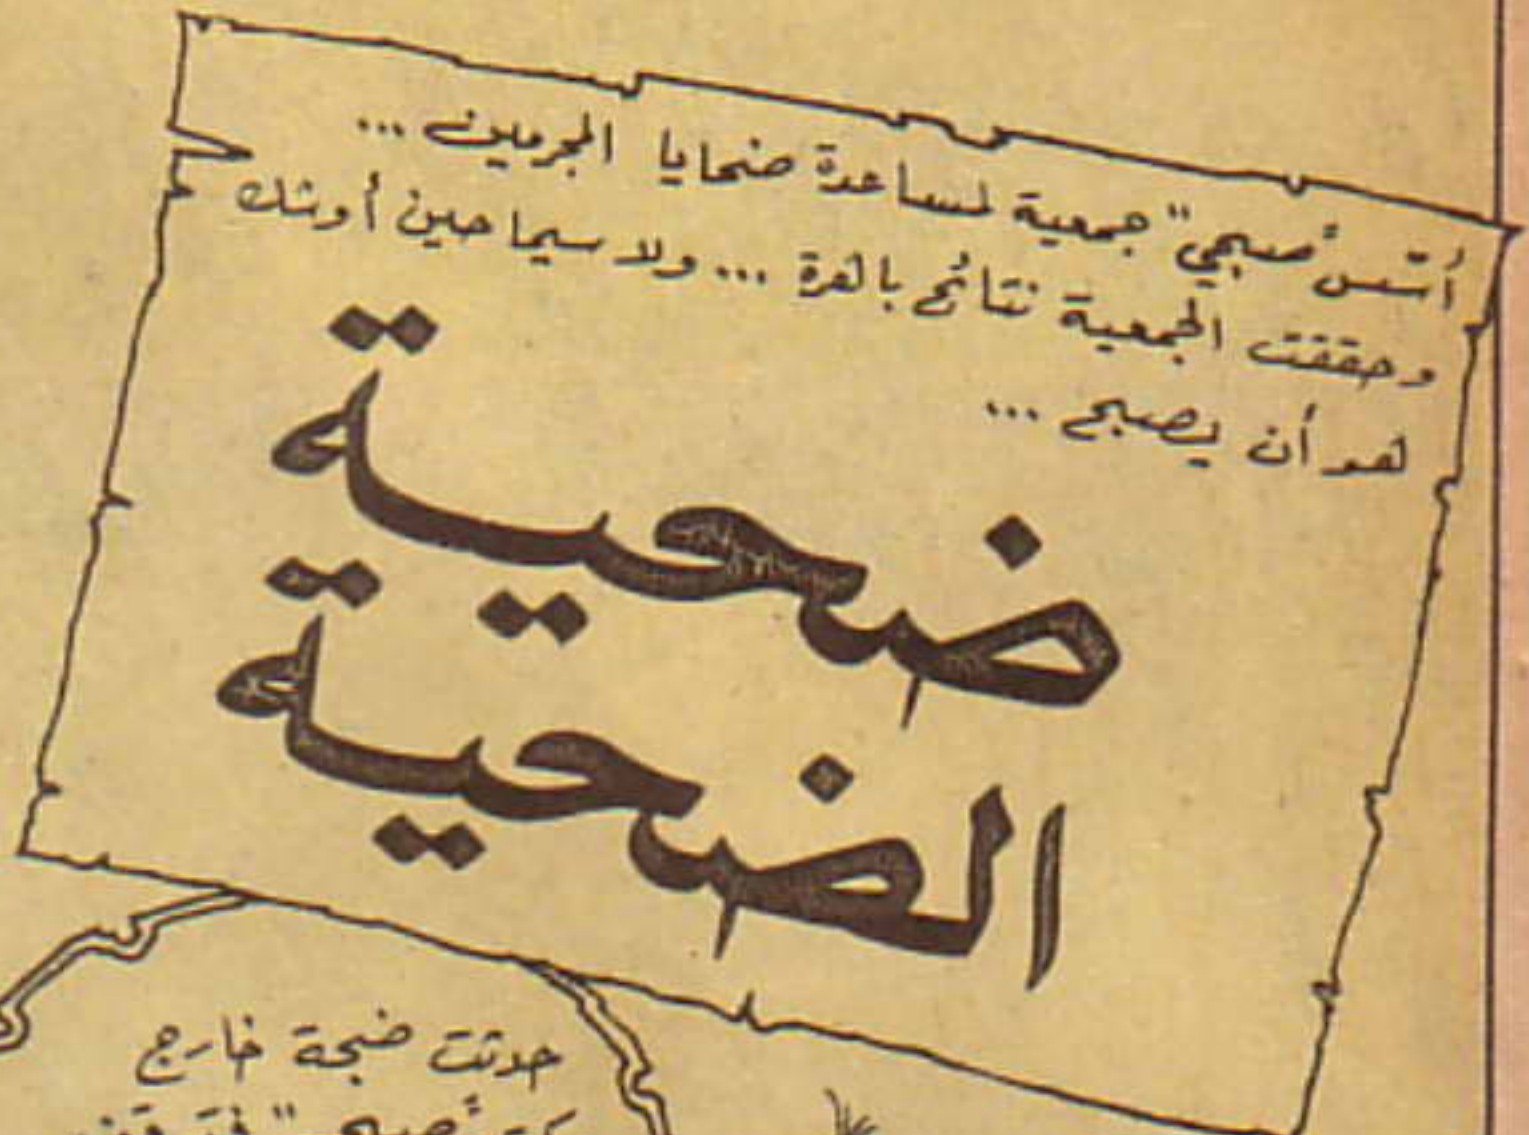 أسّس "صبحي" جمعية لمساعدة ضحايا المجرمين ...
وحققت الجمعية نتائج باهرة ... ولا سيما حين أوشك
هو أن يصبح ...
ضحية
الضحية
حدثت ضجة خارج